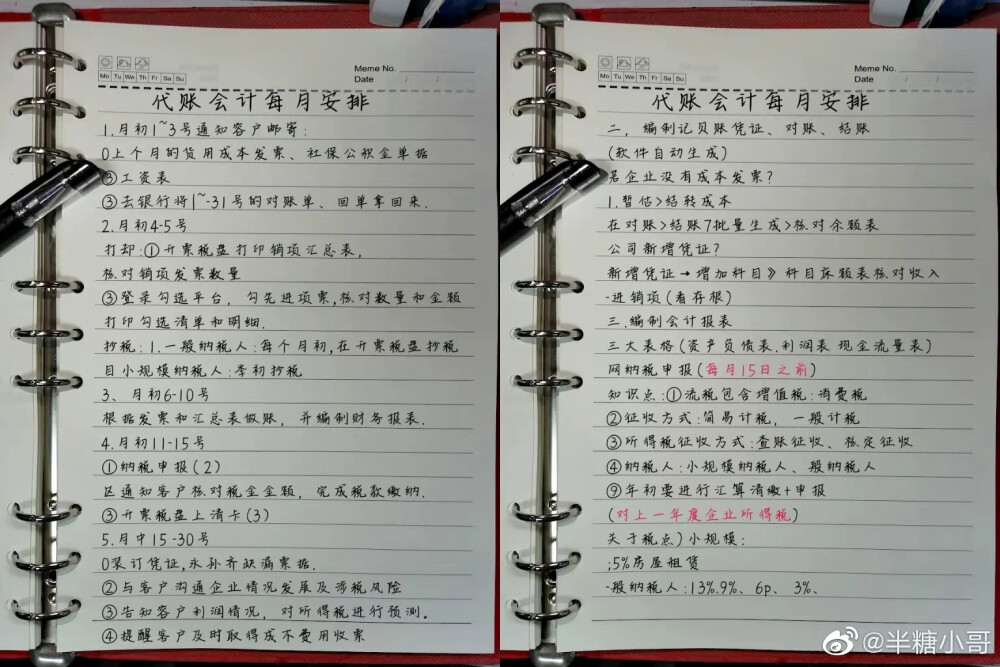 Mo Tu We Th Fr Sa Su
Meme No.
Date / /
代账会计每月安排
1.月初1~3号通知客户邮寄:
0上个月的货用成本发票、社保公积金单据
②工资表
③去银行将1~-31号的对账单、回单拿回来.
2.月初4-5号
打却:①开票税盘打印销项汇总表,
核对销项发票数量
③登录勾选平台,勾先进项票,核对数量和金额
打印勾选清单和明细.
抄税:1.一般纳税人:每个月初,在开票税盘抄税
目小规模纳税人:季初抄税
3、月初6-10号
根据发票和汇总表做账,并编制财务报表.
4.月初11-15号
①纳税申报(2)
区通知客户核对税金金额,完成税款缴纳.
③开票税盘上清卡(3)
5.月中15-30号
0装订凭证,永孙齐缺漏票据.
②与客户沟通企业情况发展及涉税风险
③告知客户利润情况,对所得税进行预测.
④提醒客户及时取得成不费用收票
Mo Tu We Th Fr Sa Su
Meme No.
Date / /
代账会计每月安排
二,编制记贝账凭证、对账、结账
(软件自动生成)
若企业没有成本发票?
1.暂估>结转成本
在对账>结账7批量生成>核对余额表
公司新增凭证?
新增凭证→增加科目》科目床额表核对收入
-进销项(看存根)
三.编制会计报表
三大表格(资产负债表.利润表现金流量表)
网纳税申报(每月15日之前)
知识点:①流税包含增值税:消费税
②征收方式:简易计税,一般计税
③所得税征收方式:查账征收、核定征收
④纳税人:小规模纳税人、般纳税人
⑨年初要进行汇算清缴+申报
(对上一年度企业所得税)
关于税点)小规模:
;5%房屋租赁
-般纳税人:13%.9%、6p、3%、
@半糖小哥